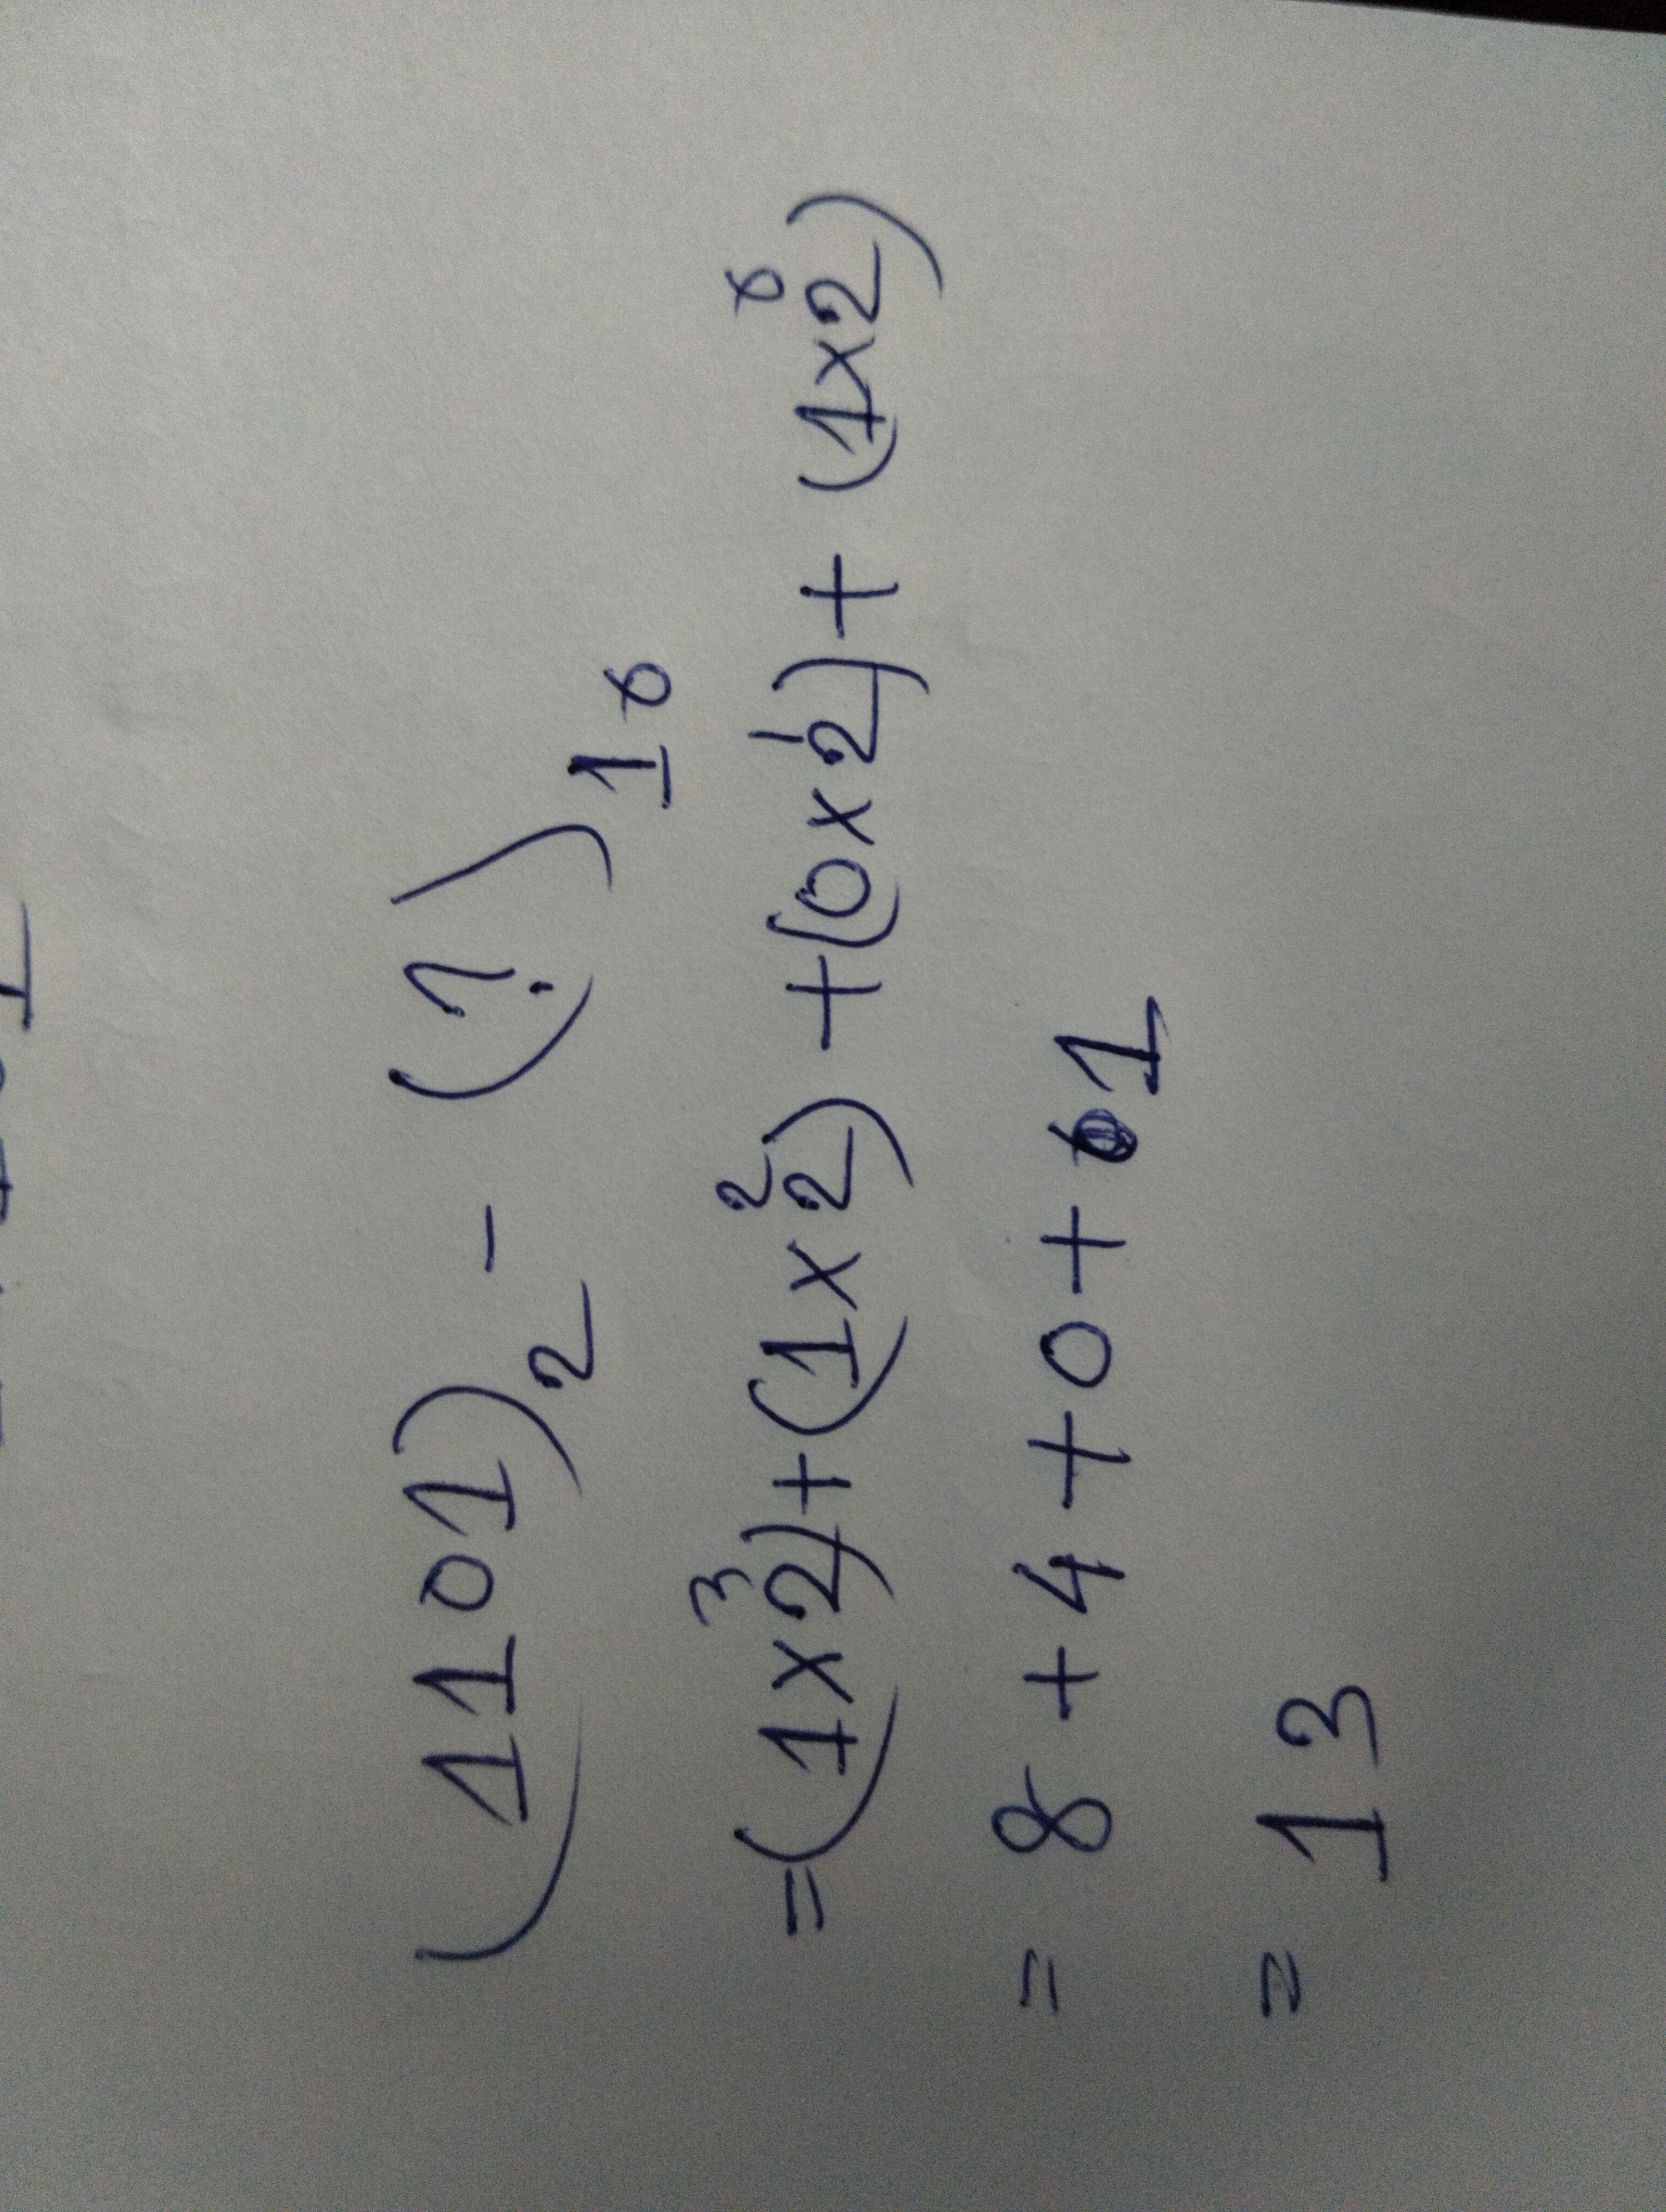 (1101)₂ - (?)₁₀
=(1×2³)+(1×2²)+(0×2¹)+(1×2⁰)
= 8+4+0+1
= 13